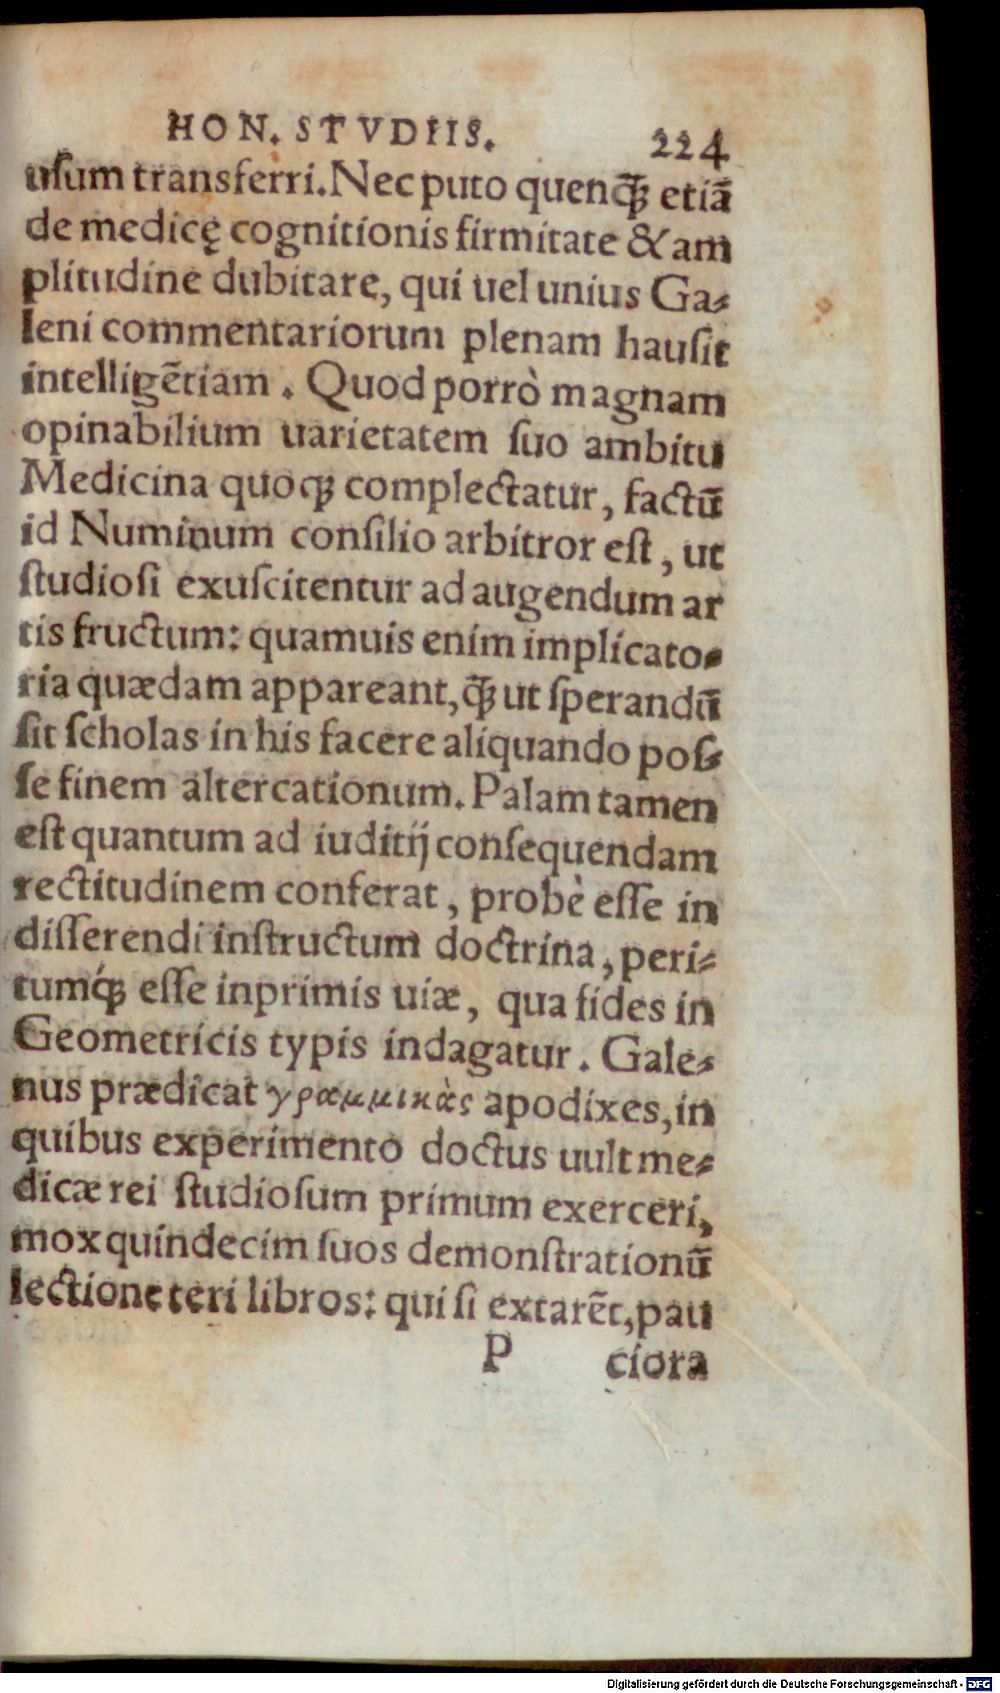 HON. STVDIIS. 224
uſum transferri. Nec puto quenꝗ̃ etiã
de medicę cognitionis firmitate & am
plitudine dubitare, qui uel unius Ga-
leni commentariorum plenam hauſit
intelligẽtiam. Quod porrò magnam
opinabilium uarietatem ſuo ambitu
Medicina quoꝗ complectatur, factũ
id Numinum conſilio arbitror eſt, ut
ſtudioſi exuſcitentur ad augendum ar
tis fructum: quamuis enim implicato-
ria quædam appareant, ꝗ̃ ut ſperandũ
ſit ſcholas in his facere aliquando poſ-
ſe finem altercationum. Palam tamen
eſt quantum ad iuditij conſequendam
rectitudinem conferat, probè eſſe in
diſſerendi inſtructum doctrina, peri-
tumꝗ́ eſſe inprimis uiæ, qua fides in
Geometricis typis indagatur. Gale-
nus prædicat γραμμικὰς apodixes, in
quibus experimento doctus uult me-
dicæ rei ſtudioſum primum exerceri,
mox quindecim ſuos demonſtrationũ
lectione teri libros: qui ſi extarẽt, pau
P ciora
Digitalisierung gefördert durch die Deutsche Forschungsgemeinschaft - DFG